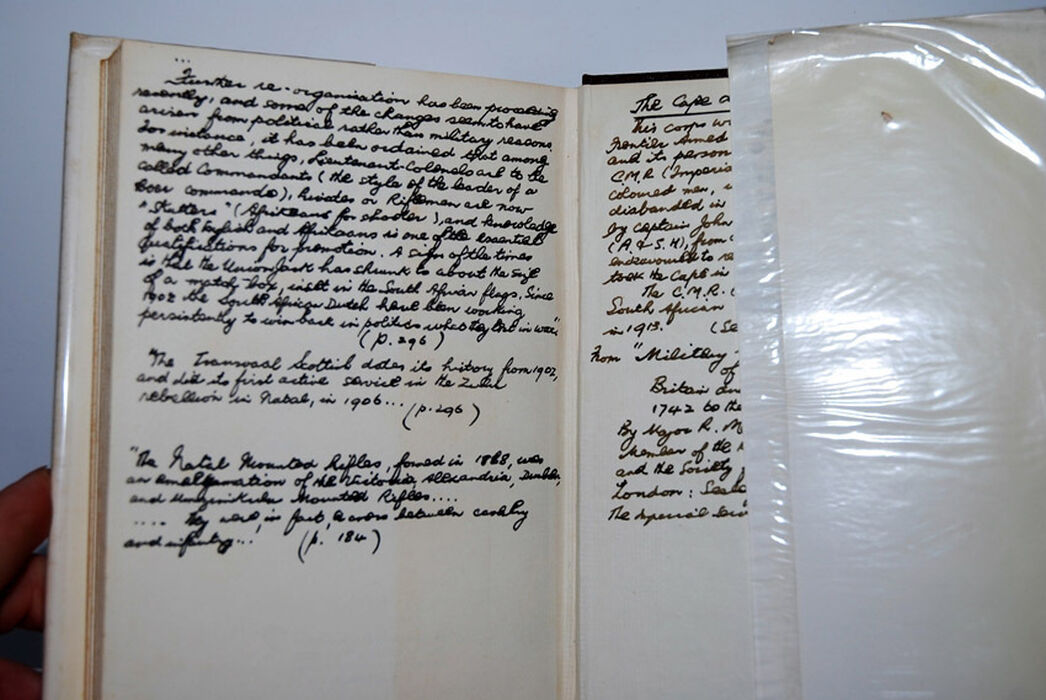 ...
Further re-organisation has been proceeding
recently, and some of the changes seem to have
arisen from political rather than military reasons.
For instance, it has been ordained that among
many other things, Lieutenant-Colonels are to be
called Commandants (the style of the leader of a
Boer commando), Privates or Riflemen are now
"Skutters" (Afrikaans for shooter), and knowledge
of both English and Afrikaans is one of the essential
qualifications for promotion. A sign of the times
is that the Union Jack has shrunk to about the size
of a match box, inset in the South African flags. Since
1902 the South African Dutch have been working
persistently to win back in politics what they lost in war."
(p. 296)
"The Transvaal Scottish dates its history from 1902,
and did its first active service in the Zulu
rebellion in Natal, in 1906... (p. 296)
"The Natal Mounted Rifles, formed in 1888, was
an amalgamation of the Victoria, Alexandria, Durban,
and Umzimkulu Mounted Rifles....
.... They were, in fact, a cross between cavalry
and infantry... (p. 184)
The Cape
This corps
Frontier Armed
and its person
C.M.R. (Imperia
coloured men,
disbanded in
by captain John
(A. & S. H), from
endeavoured to
took the Cape in
The C.M.R.
South African
in 1913.
From "Military
of
Britain
1742 to the
By Major R. M
Member of the
and the Society
London: See
The Imperial